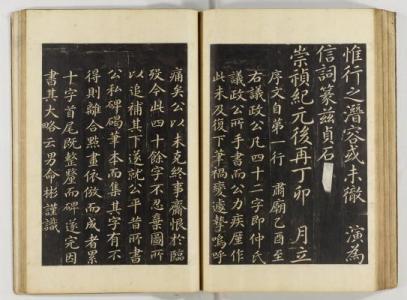 惟行之潛容或未徹 演為
信詞篆茲貞石
崇禎紀元後再丁卯 月立
序文自第一行 肅廟己酉至
右議政公凡四十二字即仲氏
議政公所手書而公力疾厪作
此未及復下筆禍變遽嗚呼
痛矣公以未克終事齋恨於臨
歿今此四十餘字不忍棄圖所
以追補其下遂就公平昔所書
公私碑碣筆本而集其字有不
得則離合點畫依倣而成者累
十字首尾既整釐而碑遂完因
書其大略云男命彬謹識